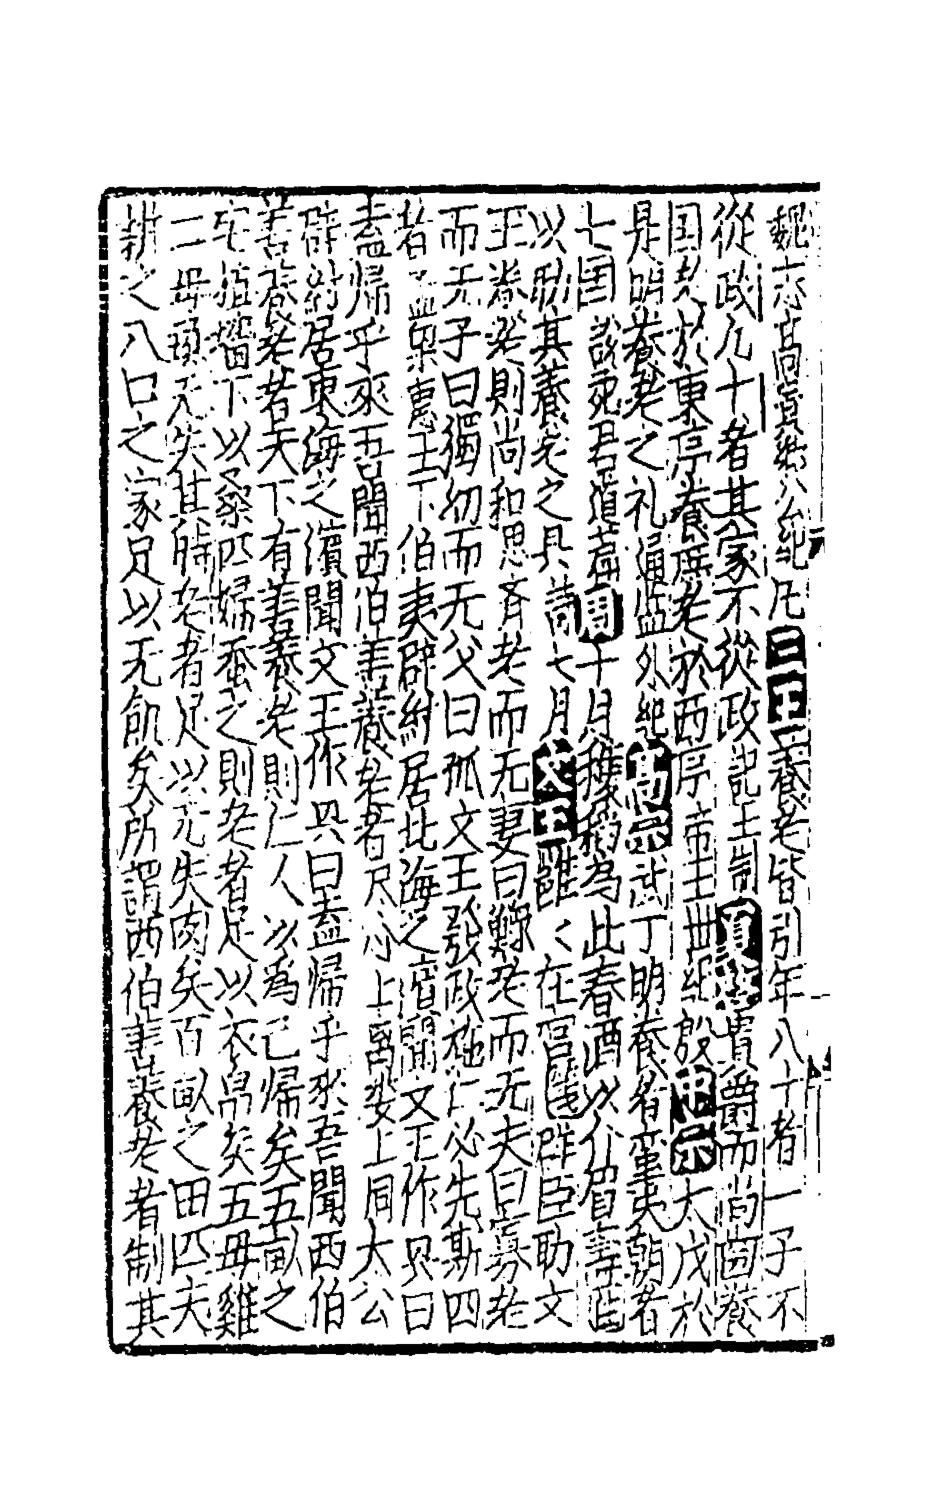 魏志高貴鄉公紀凡三王養老皆引年八十者一子不
從政九十者其家不從政記王制夏殷貴爵而尚齒養
国老於東序養庶老於西序帝王世紀殷中宗太戊於
是明養老之礼通鑑外紀高宗武丁明養老蛮夷朝者
七国説苑君道篇周十月穫稻為此春酒以介眉壽
以助其養老之具詩七月文王雝〻在宮群臣助文
王養老則尚和思齊老而无妻曰鰥老而无夫曰寡老
而无子曰獨幼而无父曰孤文王發政施仁必先斯四
者孟梁惠王下伯夷辟紂居北海之濱聞文王作兴曰
盍歸乎來吾聞西伯善養老者尽心上离娄上同太公
辟紂居東海之濱聞文王作兴曰盍歸乎來吾聞西伯
善養老者天下有善養老則仁人以為己歸矣五畝之
宅植墻下以桑匹婦蚕之則老者足以衣帛矣五母雞
二母彘无失其時老者足以无失肉矣百畝之田匹夫
耕之八口之家足以无飢矣所謂西伯善養老者制其